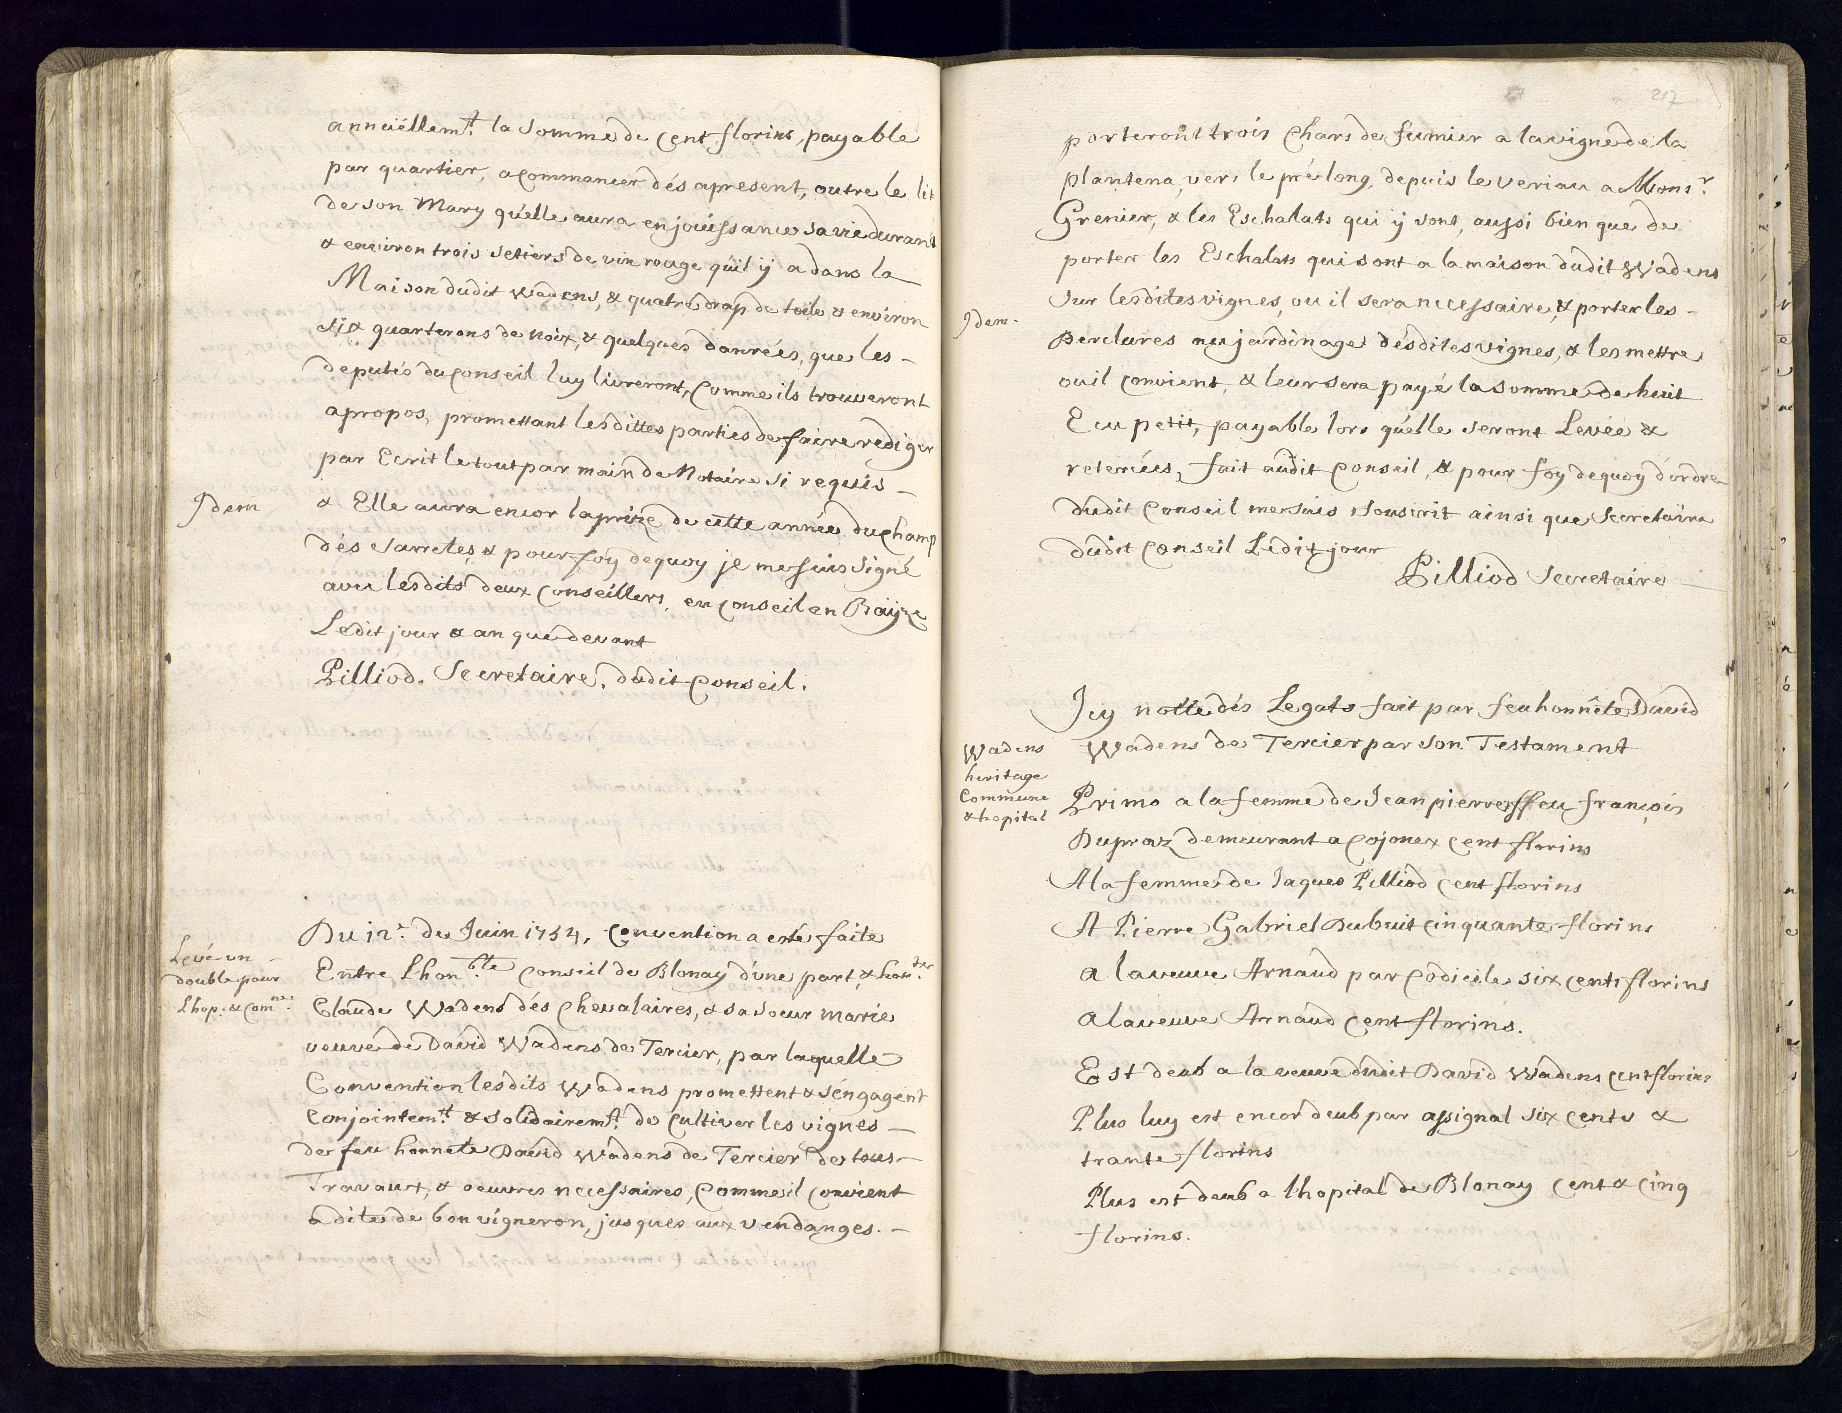 annuëllem.t la Somme de Cent florins, payable
par quartier, a commancer dés apresent, outre le lit
de son Mary qu'elle aura en jouissance sa vie durant
& environ trois Setiers de vin rouge quil ÿ a dans la
Maison dudit Wadens, & quatre drap de toile & environ
Six quarterons de noix, & quelques danrées, que les
deputés du Conseil luy livreront, Comme ils trouveront
apropos, promettant lesdittes parties de faire rediger
par Ecrit le tout par main de Notaire si requis
Idem
& Elle aura encor la prize de cette année du Champ
dés Sarretes, & pour foy dequoy je me suis signé
avec lesdits deux Conseillers, en Conseil en Baÿze
Ledit jour & an que devant
Pilliod. Secretaire, dudit Conseil.
Levé un
double pour
Lhop. & Com.ne
Du 12.e de Juin 1754, Convention a esté faite
Entre Lhon.ble Conseil de Blonay d'une part, & hon.tes
Claude Wadens dés Chevalaires, & sa Soeur Marie
veuve de David Wadens de Tercier, par laquelle
Convention lesdits Wadens promettent & s'engagent
Conjointem.t & solidairem.t de Cultiver les vignes
de feu honnete David Wadens de Tercier de tous
Travaux, & oeuvres necessaires, Comme il convient
a dite de bon vigneron, jusques aux vendanges.
217
porteront trois Chars de fumier a la vigne de la
plantena, vers le pré long, depuis le veriau a Mons.r
Grenier, & les Eschalats qui ÿ sont, aussi bien que de
porter les Eschalats qui sont a la maison dudit Wadens
Sur lesdites vignes, ou il sera necessaire, & porter les
Idem.
Derclures au jardinage désdites vignes, & les mettre
ou il convient, & leur sera payé la somme de huit
Ecu petit, payable lors qu'elle seront Levée &
retercées, fait audit Conseil, & pour foy dequoy d'ordre
dudit Conseil me suis Souscrit ainsi que Secretaire
dudit Conseil Ledit jour
Pilliod Secretaire
Icy notte dés Legats fait par feu honnête David
Wadens de Tercier par son Testament
Wadens
heritage
Commune
& hopital
Primo a la femme de Jean pierre ffeu françois
Dupraz demeurant a Cojonex Cent florins
A la femme de Jaques Pilliod Cent florins
A Pierre Gabriel Dubuit Cinquante florins
a la veuve Arnaud par Codicile six Cent florins
a la veuve Arnaud Cent florins.
Est deub a la veuve dudit David Wadens Cent florins
Plus luy est encor deub par assignal six Cents &
trante florins
Plus est deub a lhopital de Blonay Cent & Cinq
florins.